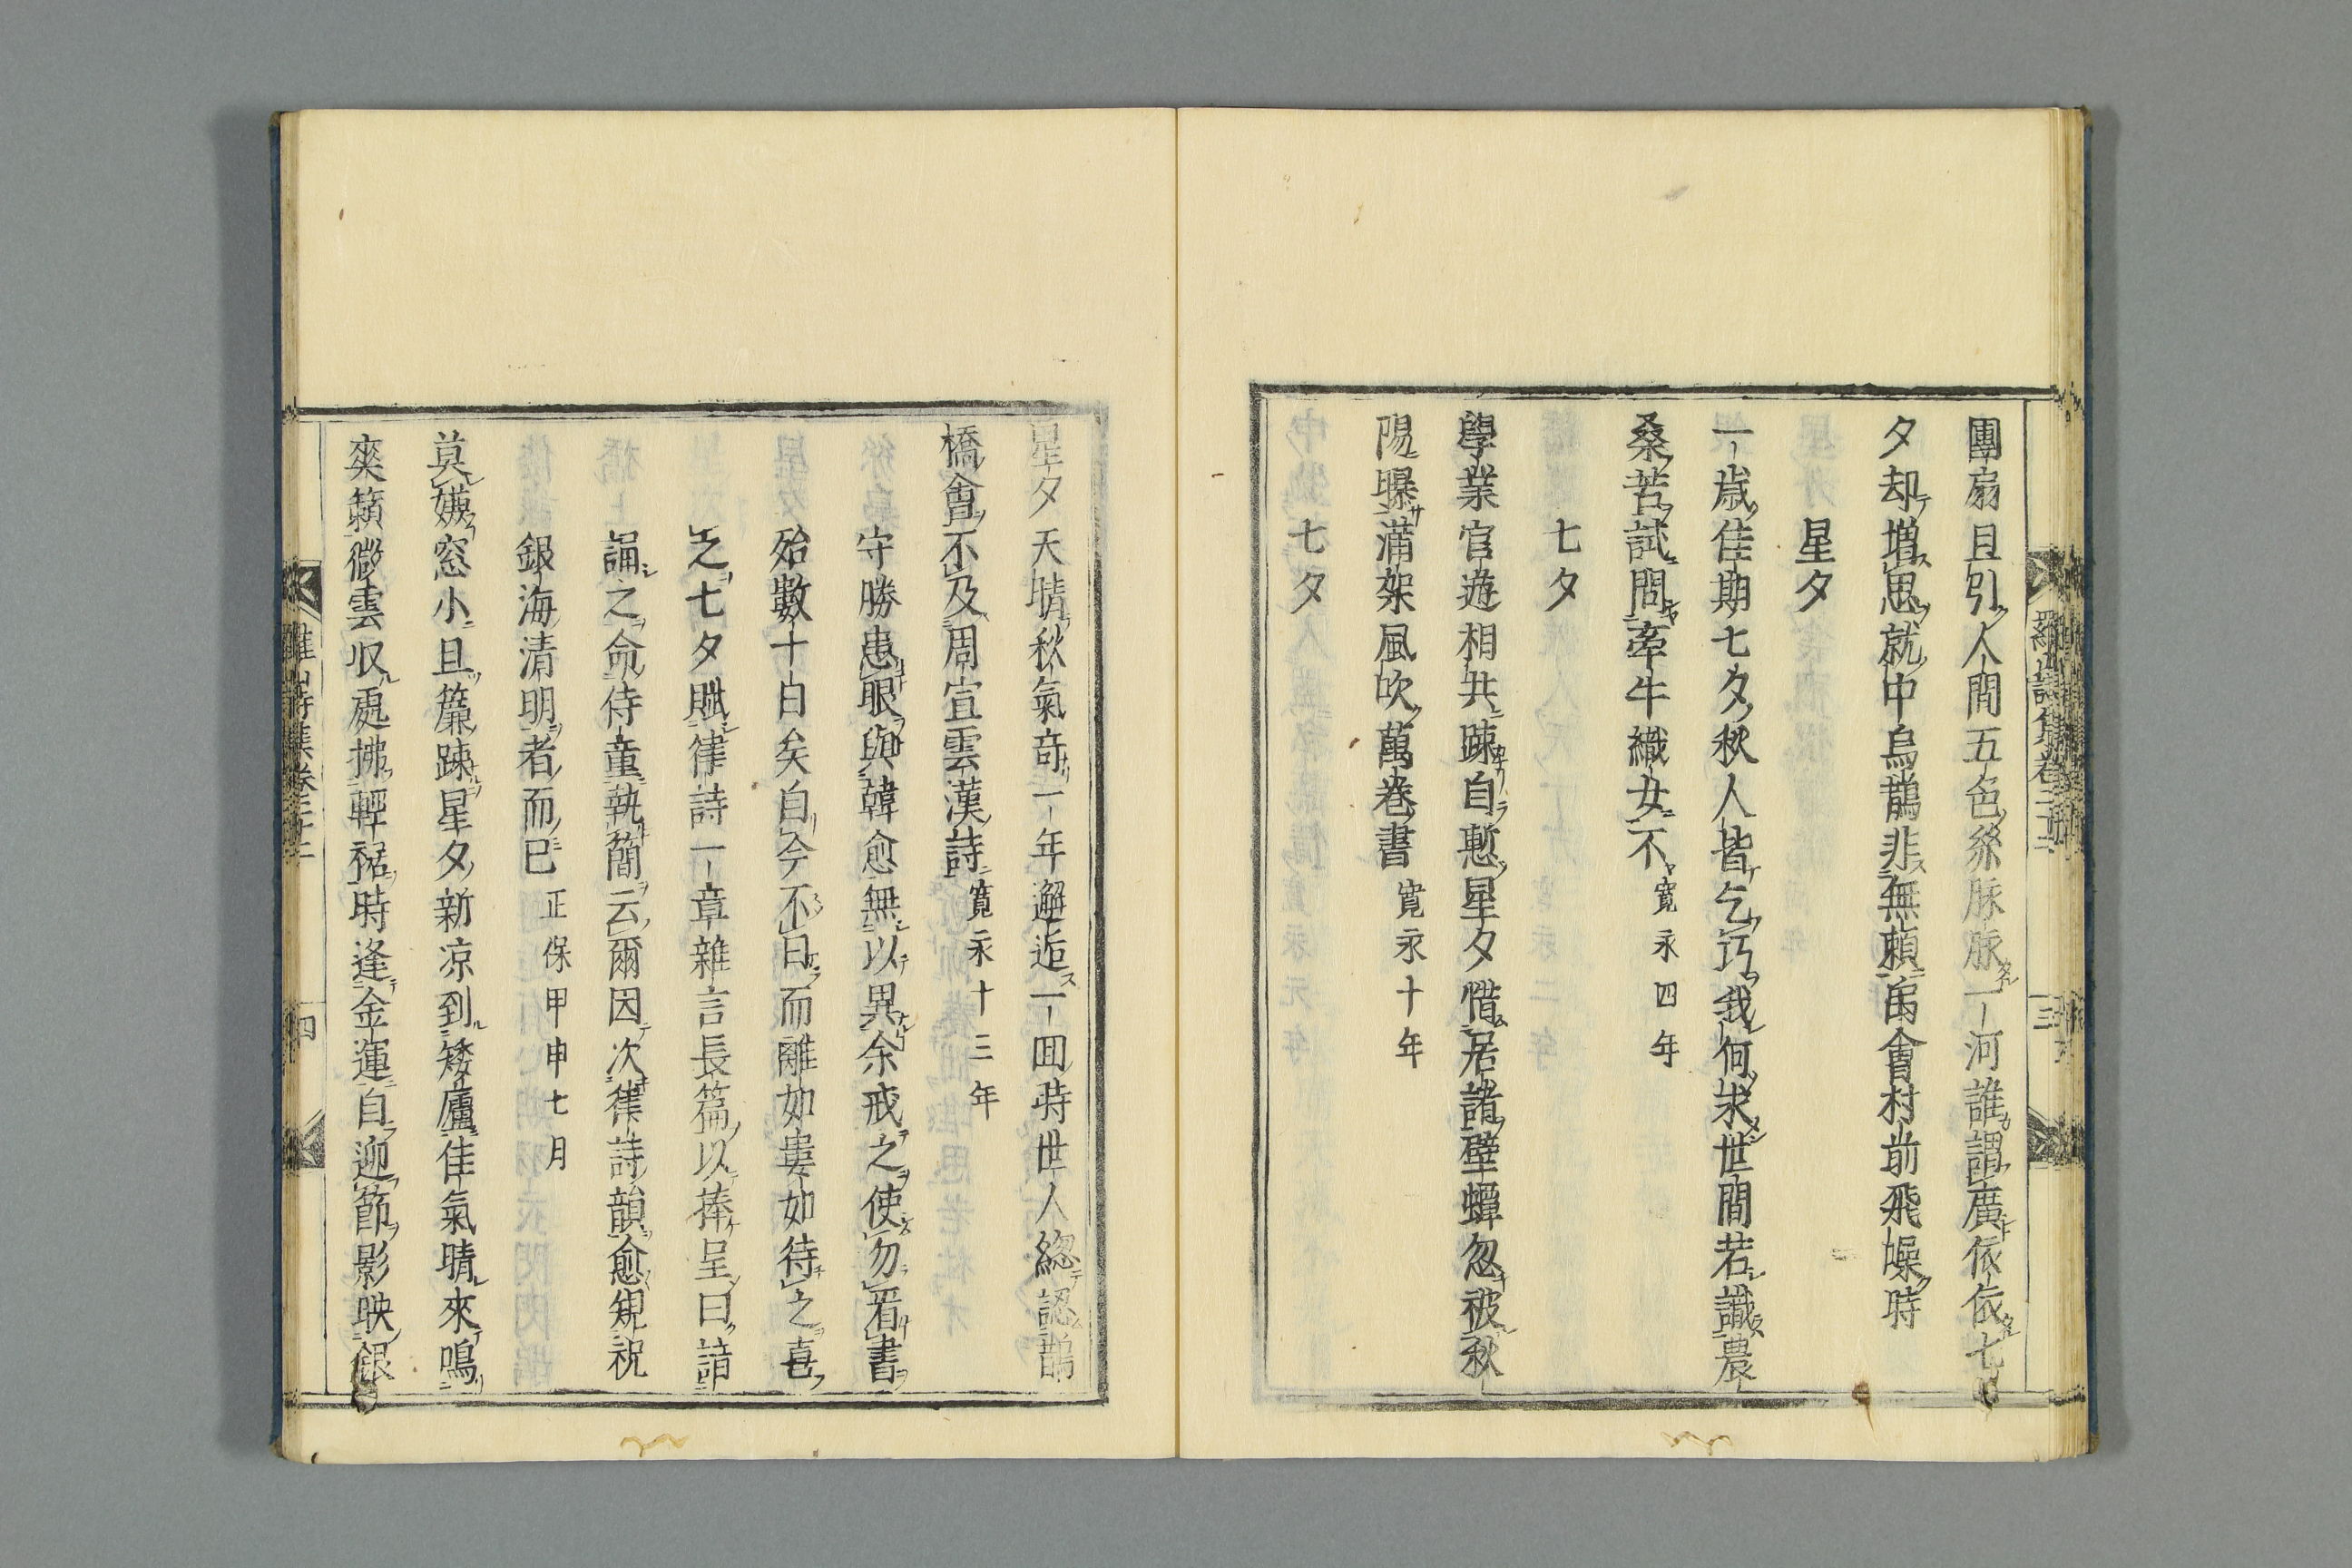 團扇且引人間五色絲脉脉一河誰謂廣依依七
夕却増思就中烏鵲非無頼為會村前飛噪時
星夕
一歳佳期七夕秋人皆乞巧我何求世間若識農
桑苦試問牽牛織女不寛永四年
七夕
學業官遊相共踈自慙星夕惜居諸壁蟫忽被秋
陽曝滿架風吹萬巻書寛永十年
七夕
星夕天晴秋氣奇一年邂逅一囬時世人総認鵲
橋會不及周宣雲漢詩寛永十三年
守勝患眼與韓愈無以異余戒之使勿看書
殆數十日矣自今不日而離如婁如待之喜
之七夕賦律詩一章雜言長篇以捧呈曰諳
誦之命侍童執簡云爾因次律詩韻愈䂓祝
銀海清明者而已正保甲申七月
莫嫌窓小且簾踈星夕新凉到矮廬佳氣晴來鳴
爽籟微雲収處拂輕裾時逢金運自迎節影映銀
羅山詩集巻三十二
三
羅山詩集巻三十二
四